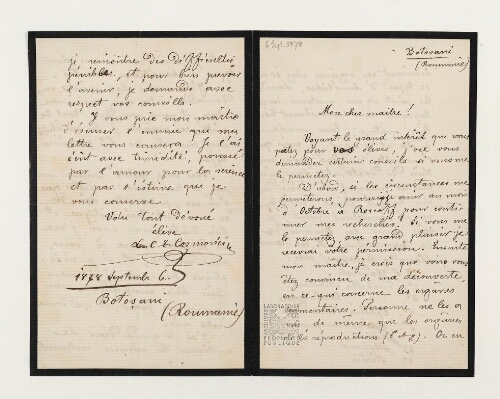 6 Sept. 1878
Botosani
(Roumanie)
Mon cher maître!
Voyant le grand intérêt que vous
portez pour vos élèves, j'ose vous
demander certains conseils si vous me
le permettez.
D'abord, si les circonstances me
permetterons, j'
à Octobre à Roscoff pour conti-
nuer mes recherches. Si vous me
le permettez, avec grand plaisir je
recevrai votre permission. Ensuite
mon maître, je crois que vous vous
étez convaincu de ma découverte,
en ce qui concerne les organes
segmentaires. Personne ne les a
de même que les organes
reproductions Or en
je rencontre des difficultés
pénibles, et pour bien prevoir
l'avenir, je demande avec
respect vos conseils.
Je vous prie mon maître
d'éxcuser l'ennuie que ma
lettre vous causera. Je l'ai
écrit avec timidité, poussé
par l'amour pour la science
et par l'éstime que je
vous conserve
Votre tout Dévoué
élève
Leon C. de Cosmovici
1878 Septembre 6.
Botoșani
(Roumanie)
LABORATOIRE
PROPRIÉTÉ
PUBLIQUE